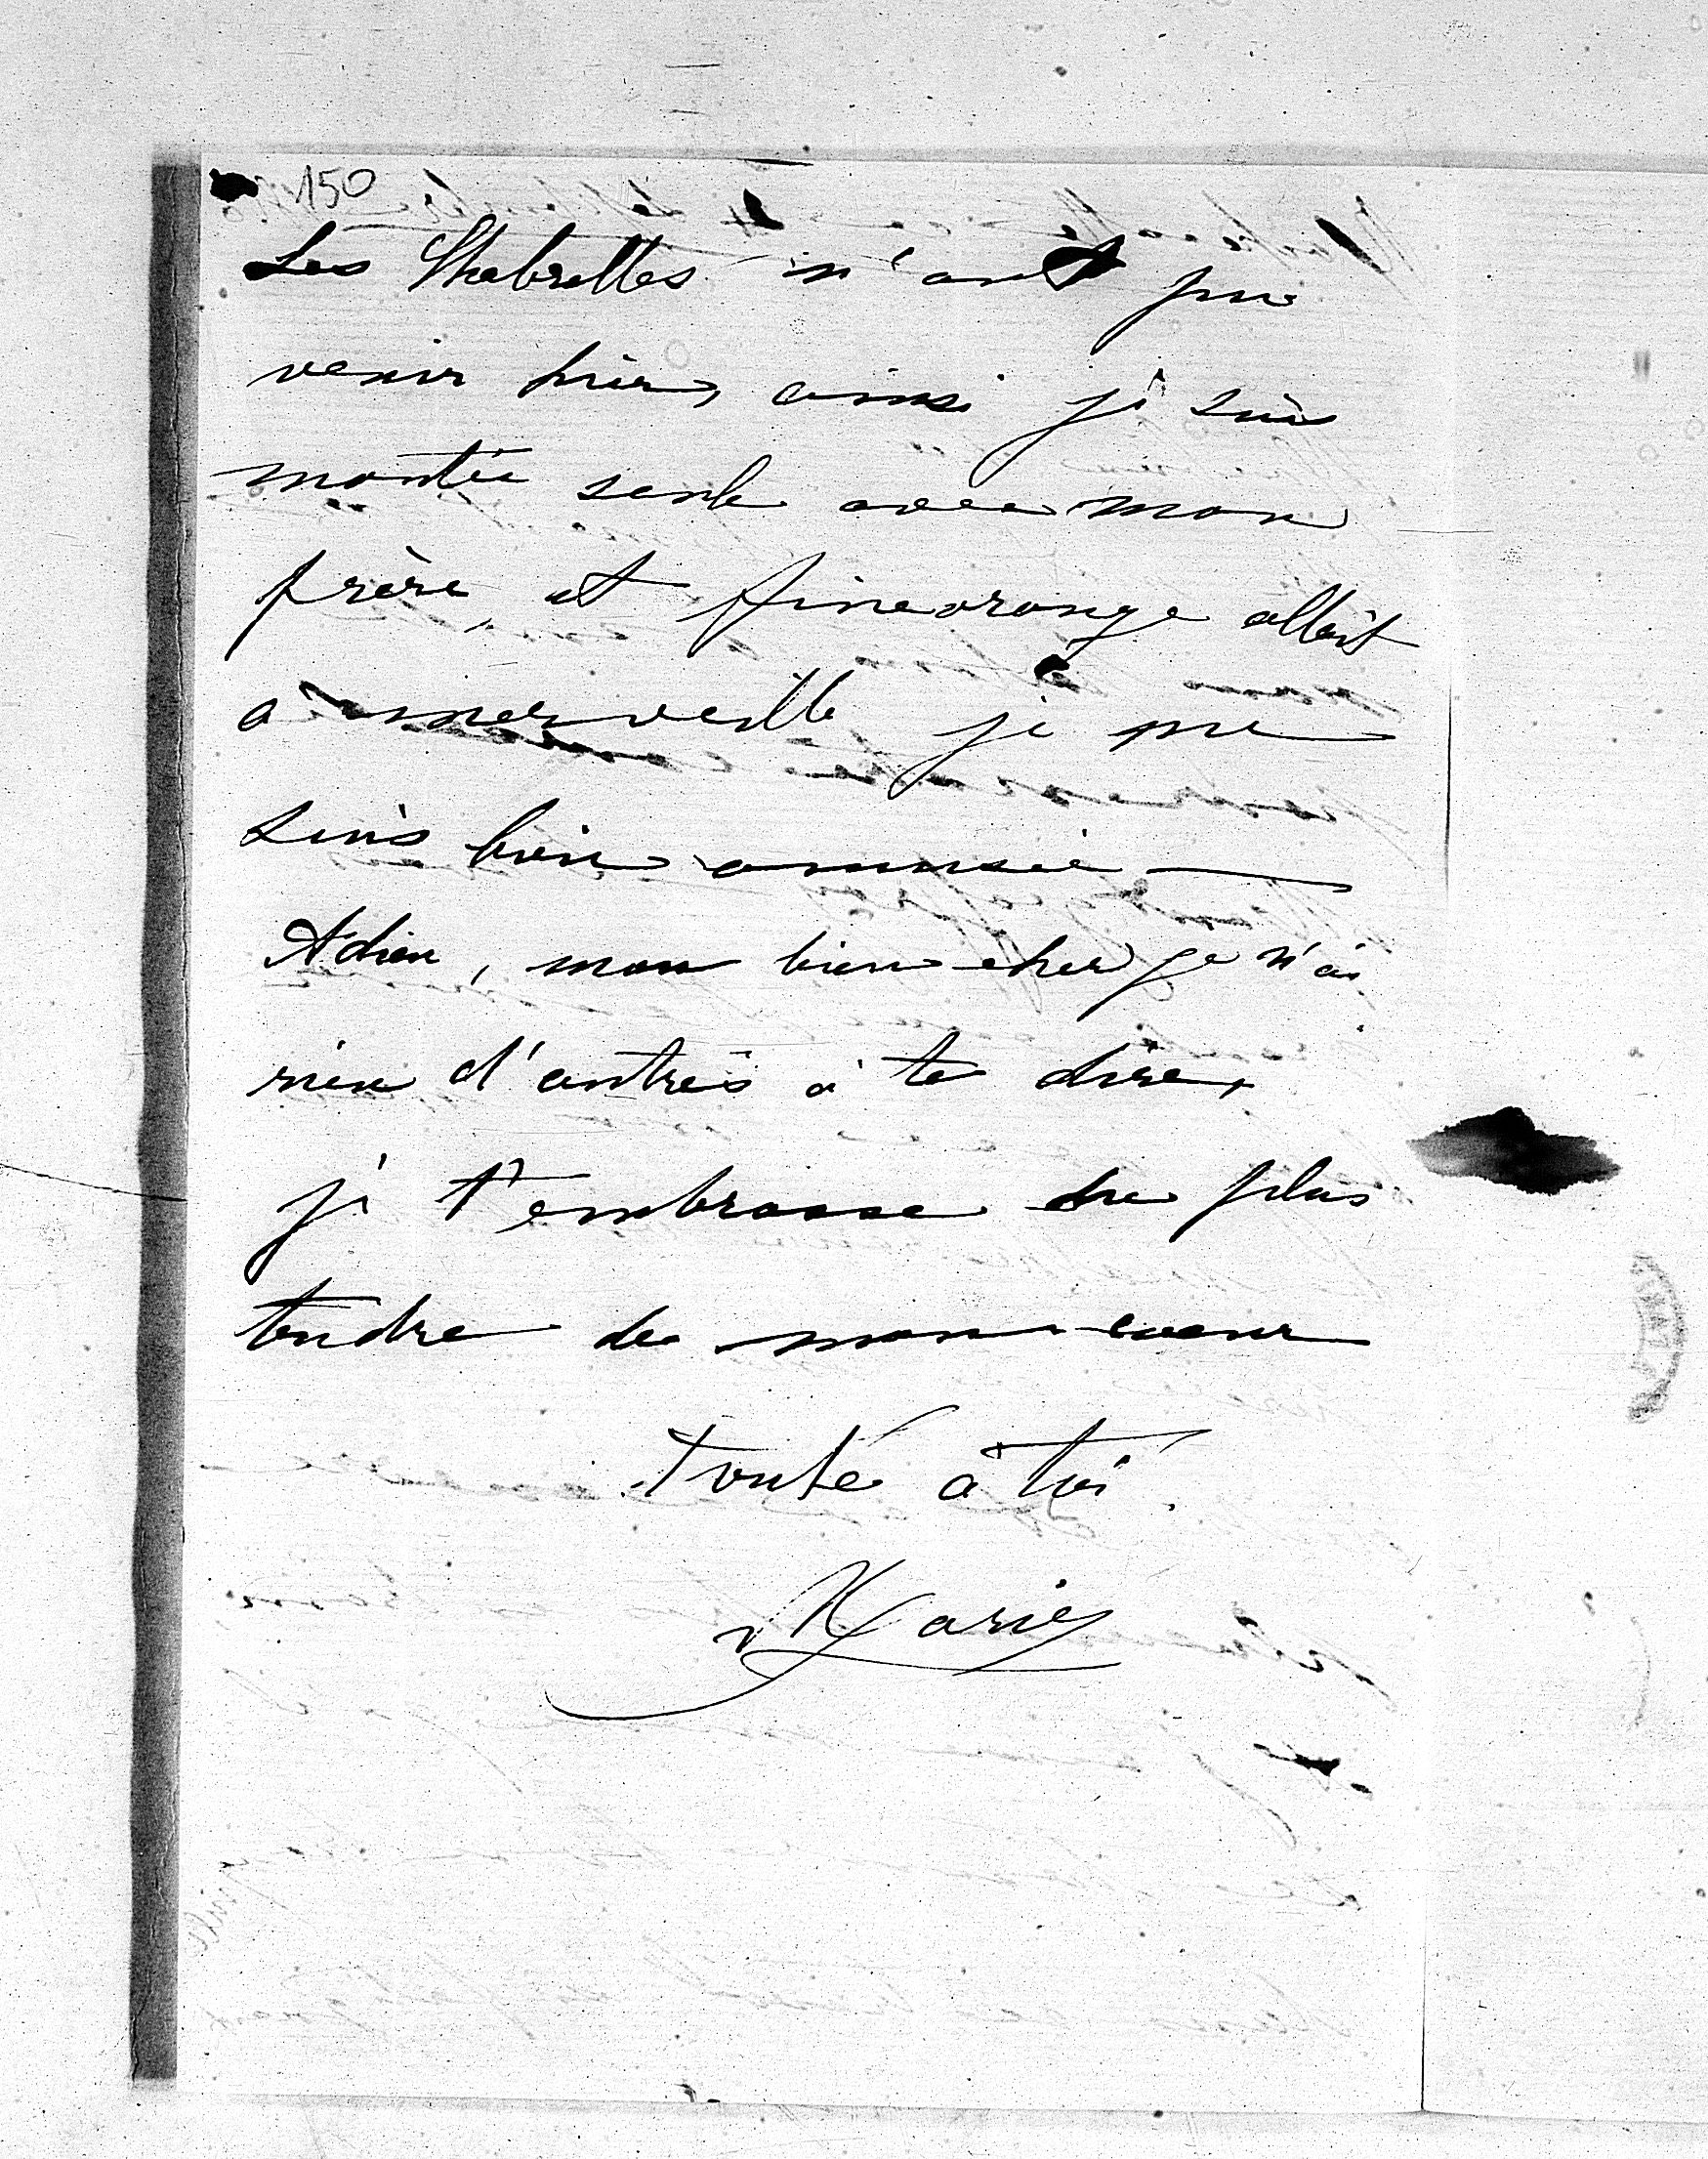 150
Les Chabrettes n'ont pu
venir hier, ainsi je suis
montée seule avec mon
frère, et Fineorange allait
a merveille je me
suis bien amusée
Adieu, mon bien cher je n'ai
rien d'autres à te dire,
je t'embrasse du plus
tendre de mon cœur
Toute à toi.
Marie